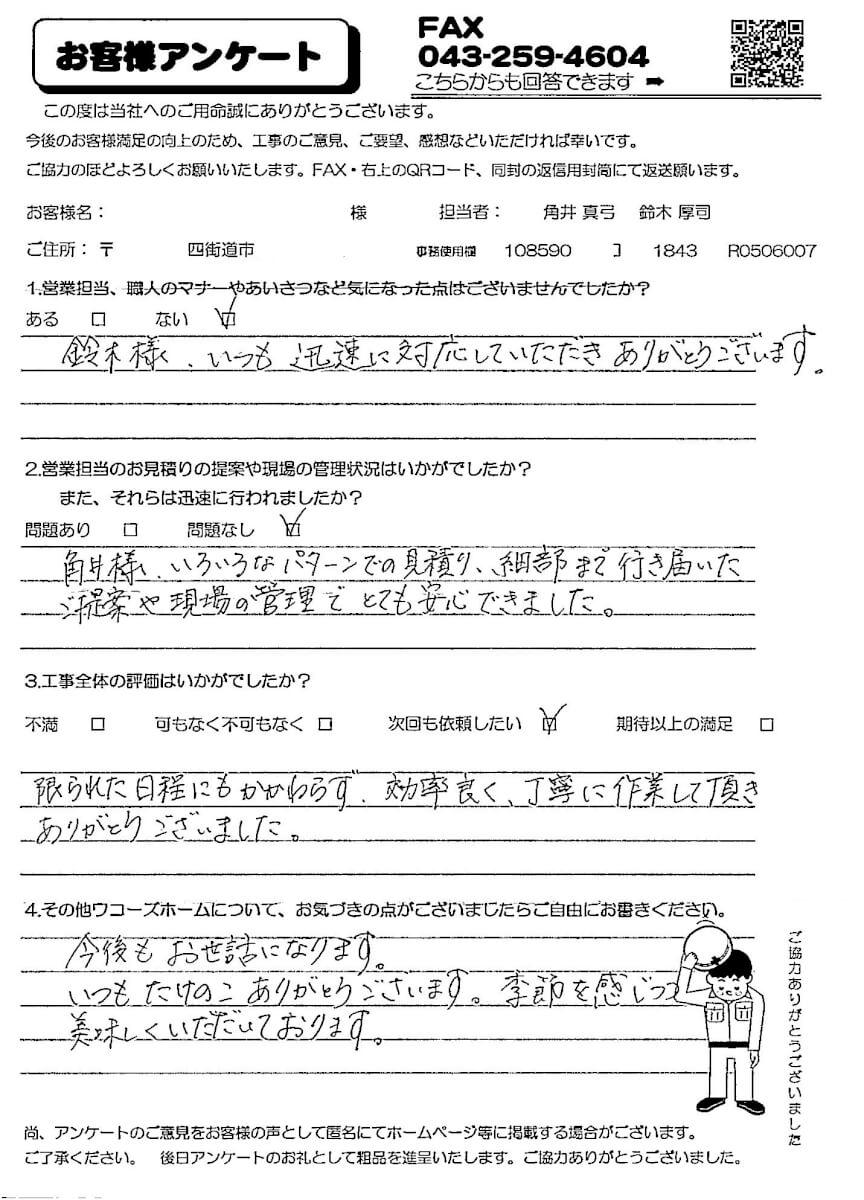 お客様アンケート
FAX
043-259-4604
こちらからも回答できます ➡
この度は当社へのご用命誠にありがとうございます。
今後のお客様満足の向上のため、工事のご意見、ご要望、感想などいただければ幸いです。
ご協力のほどよろしくお願いいたします。FAX・右上のQRコード、同封の返信用封筒にて返送願います。
お客様名： 様 担当者： 角井 真弓 鈴木 厚司
ご住所：〒 四街道市 事務使用欄 108590 コ 1843 R0506007
1.営業担当、職人のマナーやあいさつなど気になった点はございませんでしたか？
ある □ ない ☑
鈴木様、いつも迅速に対応していただきありがとうございます。
2.営業担当のお見積りの提案や現場の管理状況はいかがでしたか？
また、それらは迅速に行われましたか？
問題あり □ 問題なし ☑
角井様、いろいろなパターンでの見積り、細部まで行き届いた
ご提案や現場の管理でとても安心できました。
3.工事全体の評価はいかがでしたか？
不満 □ 可もなく不可もなく □ 次回も依頼したい ☑ 期待以上の満足 □
限られた日程にもかかわらず、効率良く、丁寧に作業して頂き
ありがとうございました。
4.その他ワコーズホームについて、お気づきの点がございましたらご自由にお書きください。
今後もお世話になります。
いつもたけのこありがとうございます。季節を感じつつ
美味しくいただいております。
ご協力ありがとうございました
尚、アンケートのご意見をお客様の声として匿名にてホームページ等に掲載する場合がございます。
ご了承ください。 後日アンケートのお礼として粗品を進呈いたします。ご協力ありがとうございました。